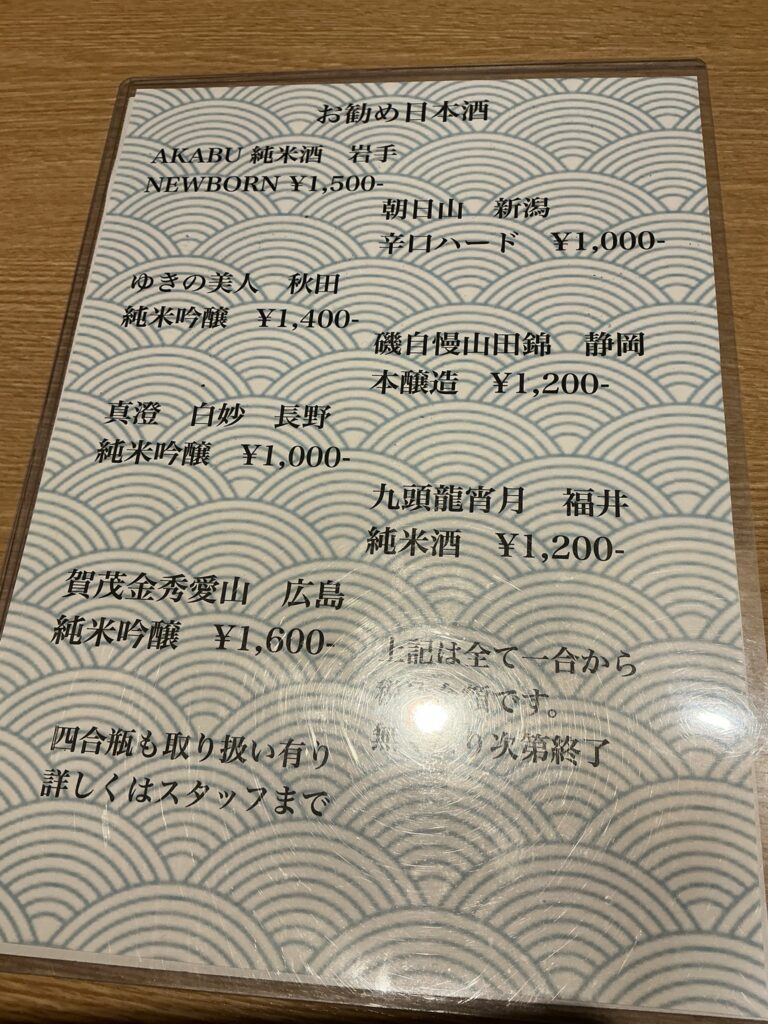 お勧め日本酒
AKABU 純米酒　岩手
NEWBORN ¥1,500-
朝日山　新潟
辛口ハード　¥1,000-
ゆきの美人　秋田
純米吟醸　¥1,400-
磯自慢山田錦　静岡
本醸造　¥1,200-
真澄　白妙　長野
純米吟醸　¥1,000-
九頭龍宵月　福井
純米酒　¥1,200-
賀茂金秀愛山　広島
純米吟醸　¥1,600-
上記は全て一合から
です。
り次第終了
四合瓶も取り扱い有り
詳しくはスタッフまで